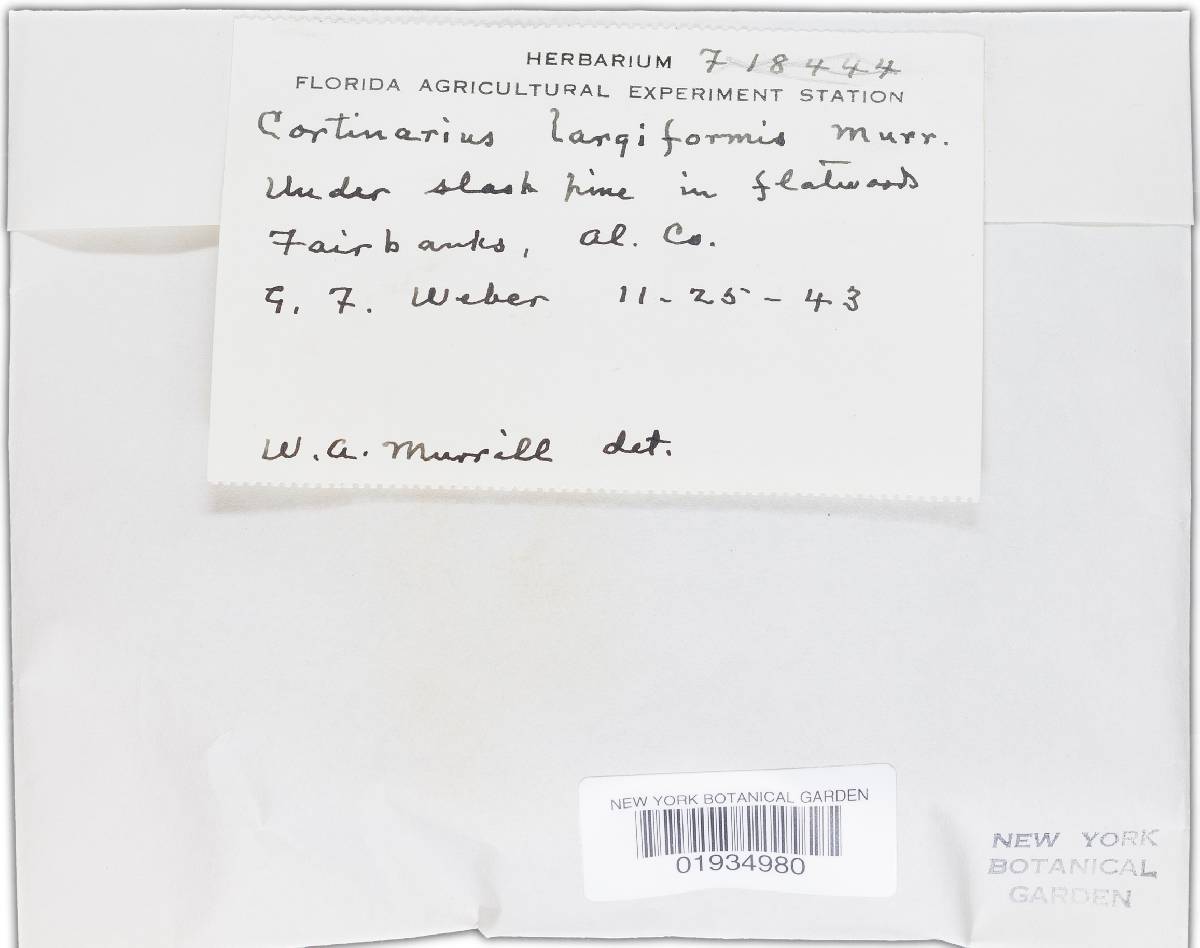 HERBARIUM 718444
FLORIDA AGRICULTURAL EXPERIMENT STATION
Cortinarius largiformis Murr.
Under slash pine in flatwoods
Fairbanks, Al. Co.
G. F. Weber 11-25-43
W. A. Murrill det.
NEW YORK BOTANICAL GARDEN
01934980
NEW YORK
BOTANICAL
GARDEN